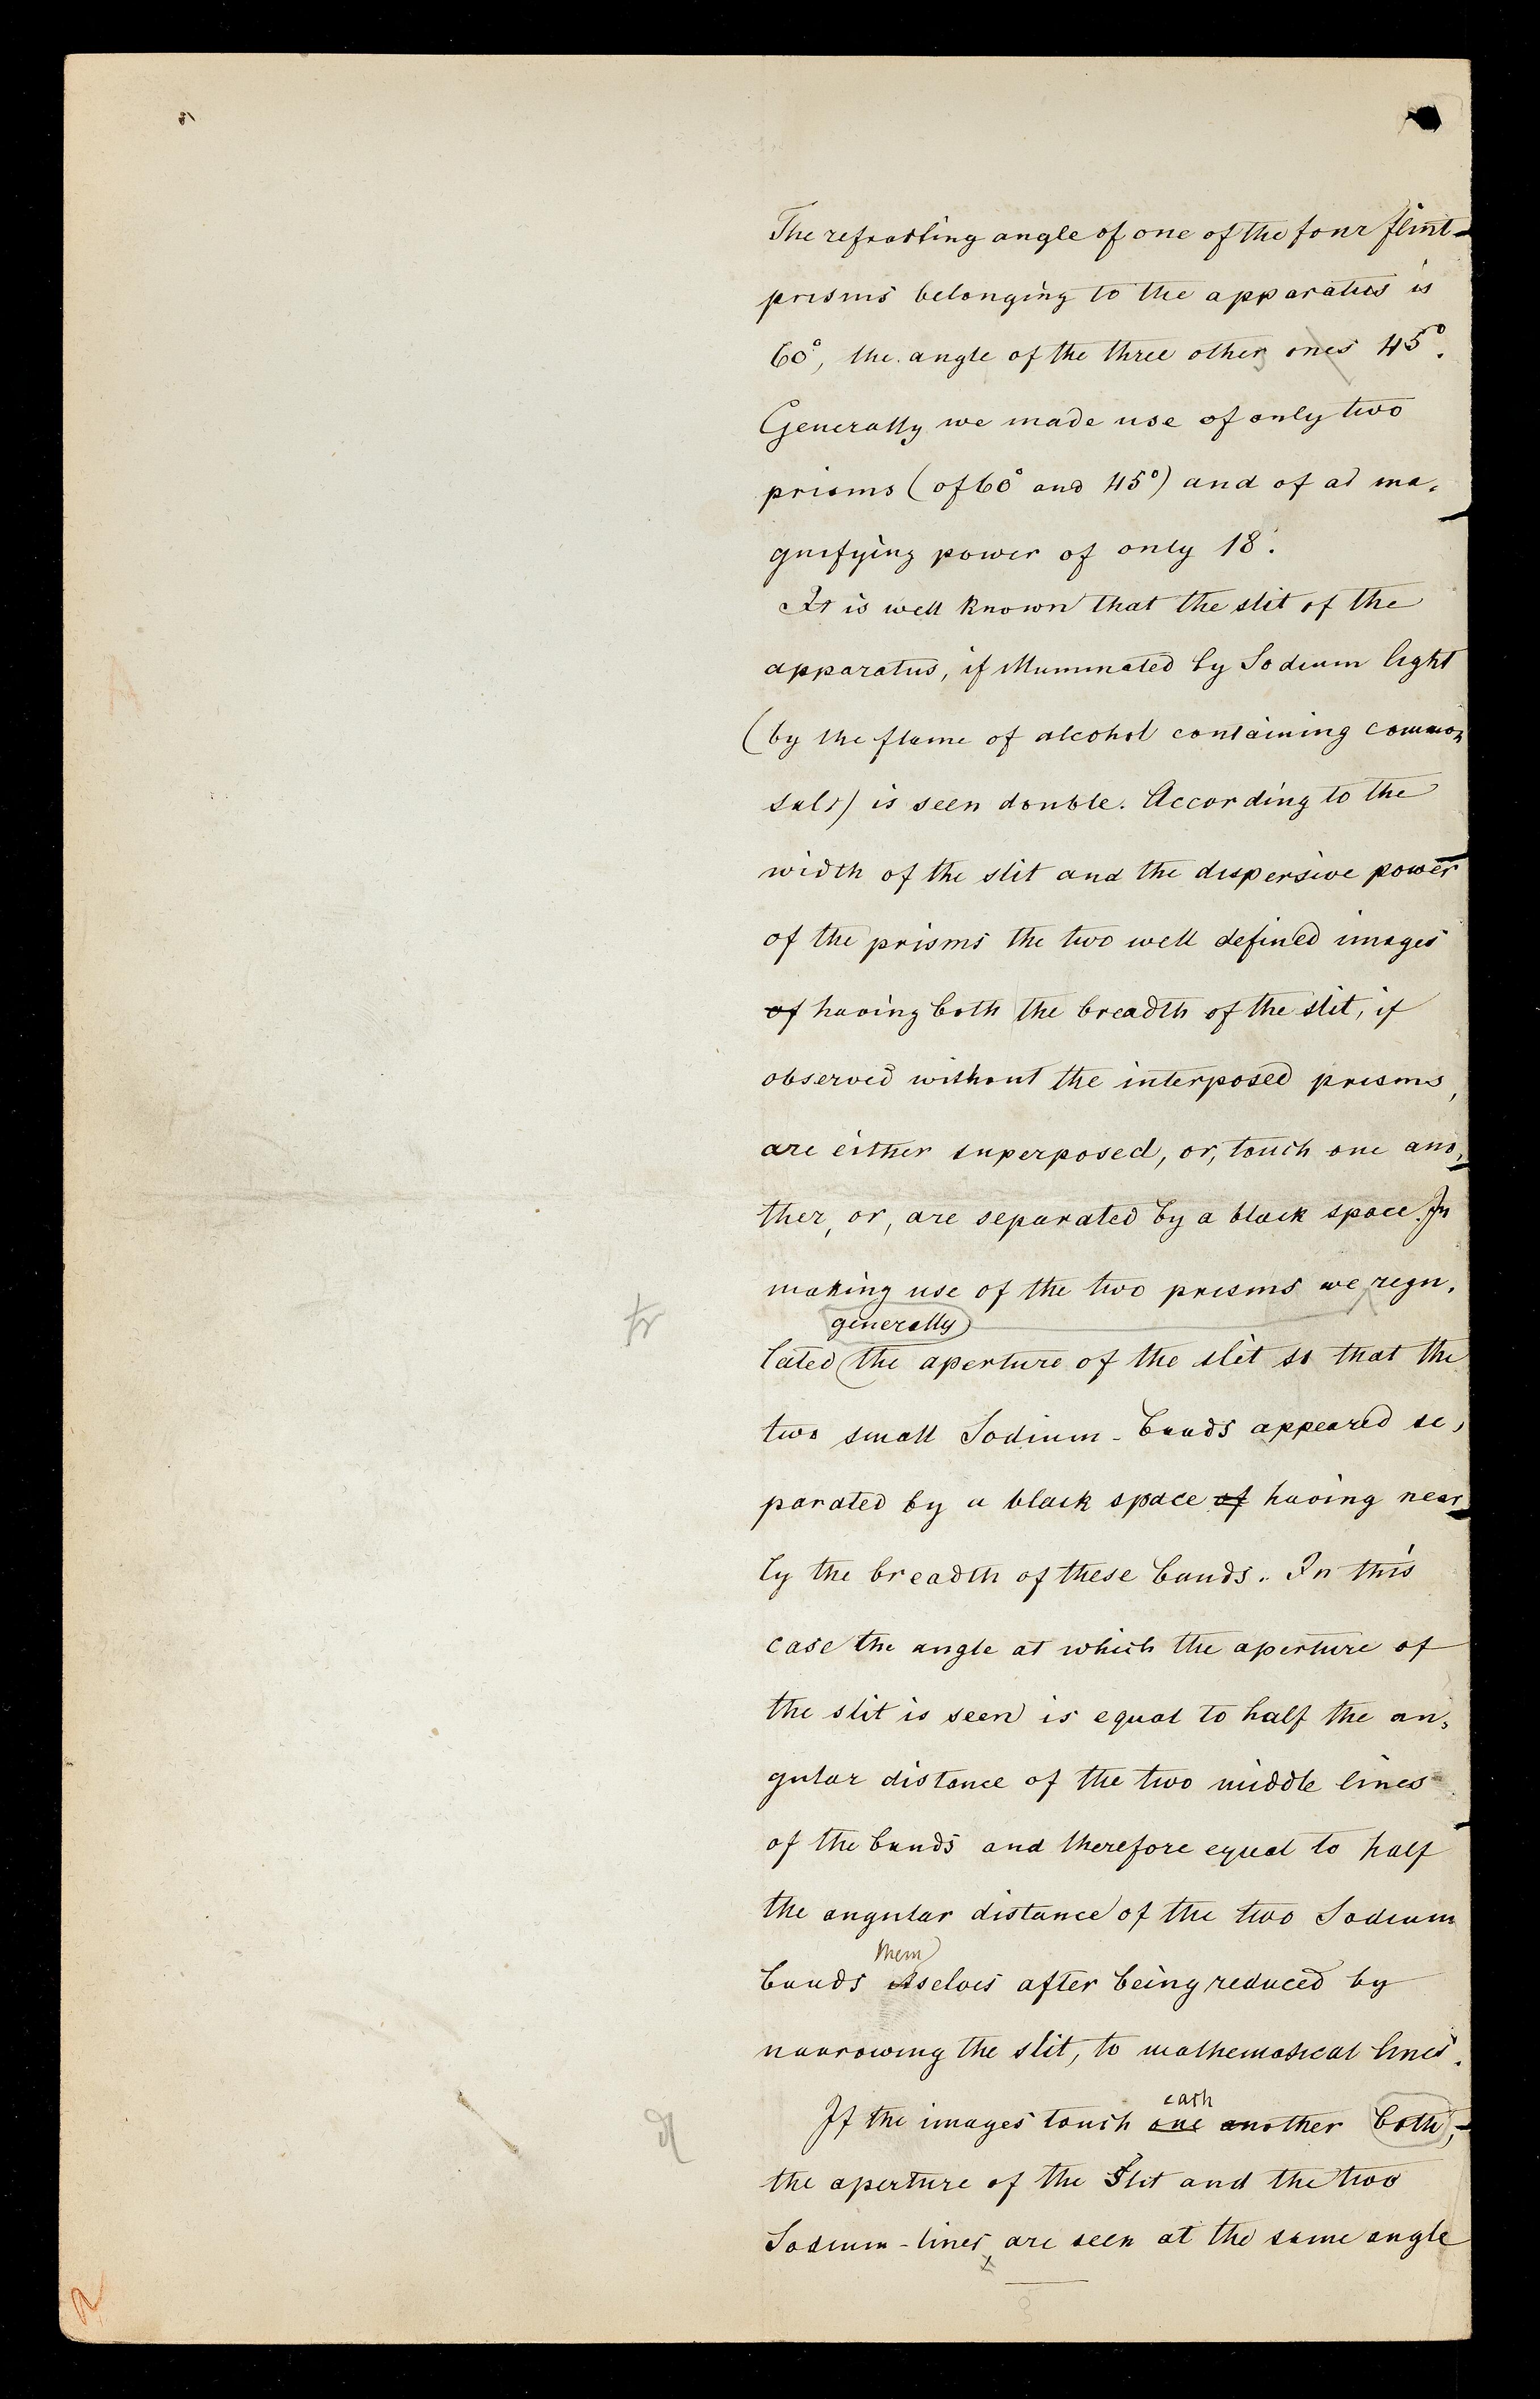 The refracting angle of one of the four flint-
prisms belonging to the apparatus is
60°, the angle of the three others ones 45°.
Generally we made use of only two
prisms (of 60° and 45°) and of a ma,
gnifying power of only 18.
It is well known that the slit of the
apparatus, if illuminated by Sodium light
(by the flame of alcohol containing common
salt) is seen double. According to the
width of the slit and the dispersive power
of the prisms the two well defined images
of having both the breadth of the slit, if
observed without the interposed prisms,
are either superposed, or, touch one ano,
ther, or, are separated by a black space. In
making use of the two prisms we regu,
tr
generally
lated the aperture of the slit so that the
two small Sodium-bands appeared se,
parated by a black space of having near
ly the breadth of these bands. In this
case the angle at which the aperture of
the slit is seen is equal to half the an,
gular distance of the two middle lines
of the bands and therefore equal to half
the angular distance of the two Sodium
them
bands itselves after being reduced by
narrowing the slit, to mathematical lines.
each
If the images touch one another both,
the aperture of the Slit and the two
Sodium-lines, are seen at the same angle